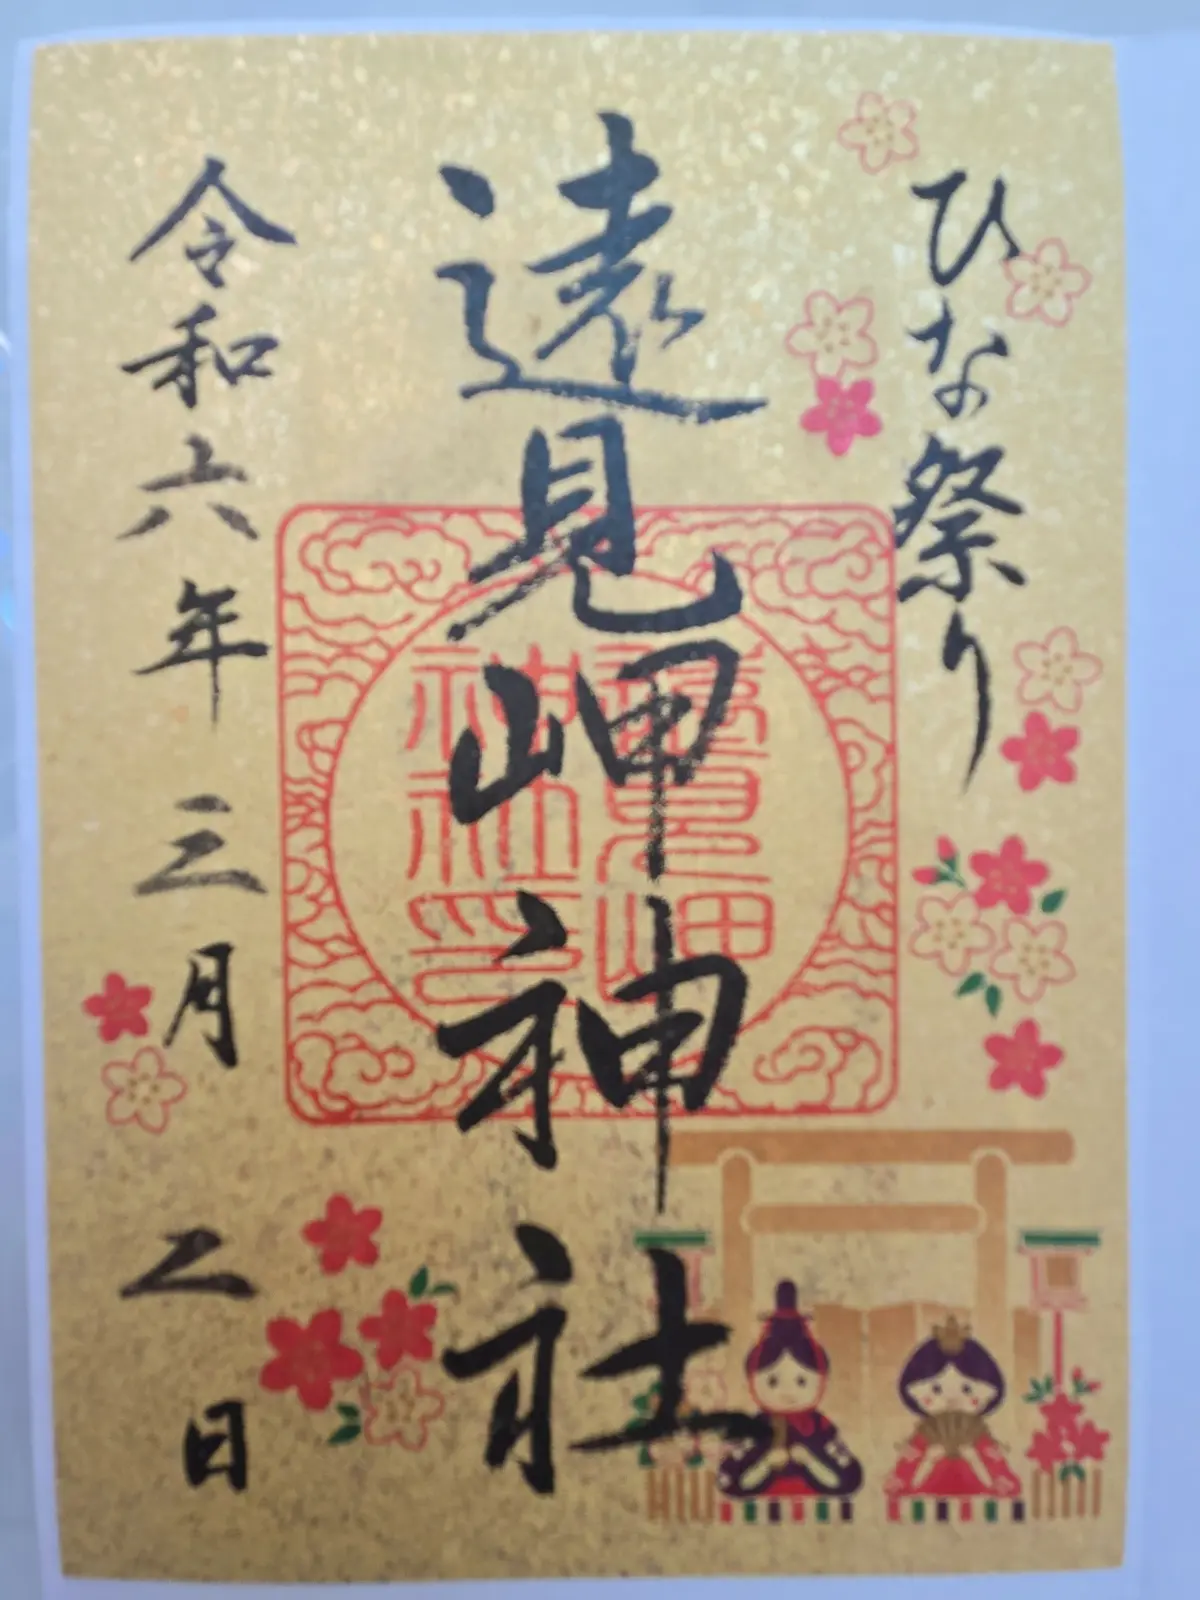 ひな祭り
遠見岬神社
遠見岬
神社印
令和六年三月二日